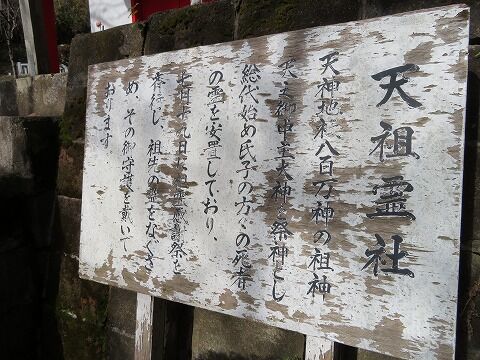 天祖霊社
天神地祇八百万神の祖神
天之御中主大神を祭神とし
総代始め氏子の方々の死者
の霊を安置しており、
十九日に 霊感謝祭を
奉行し、祖先の霊をなぐさ
め、その御守護を戴いて
おります。